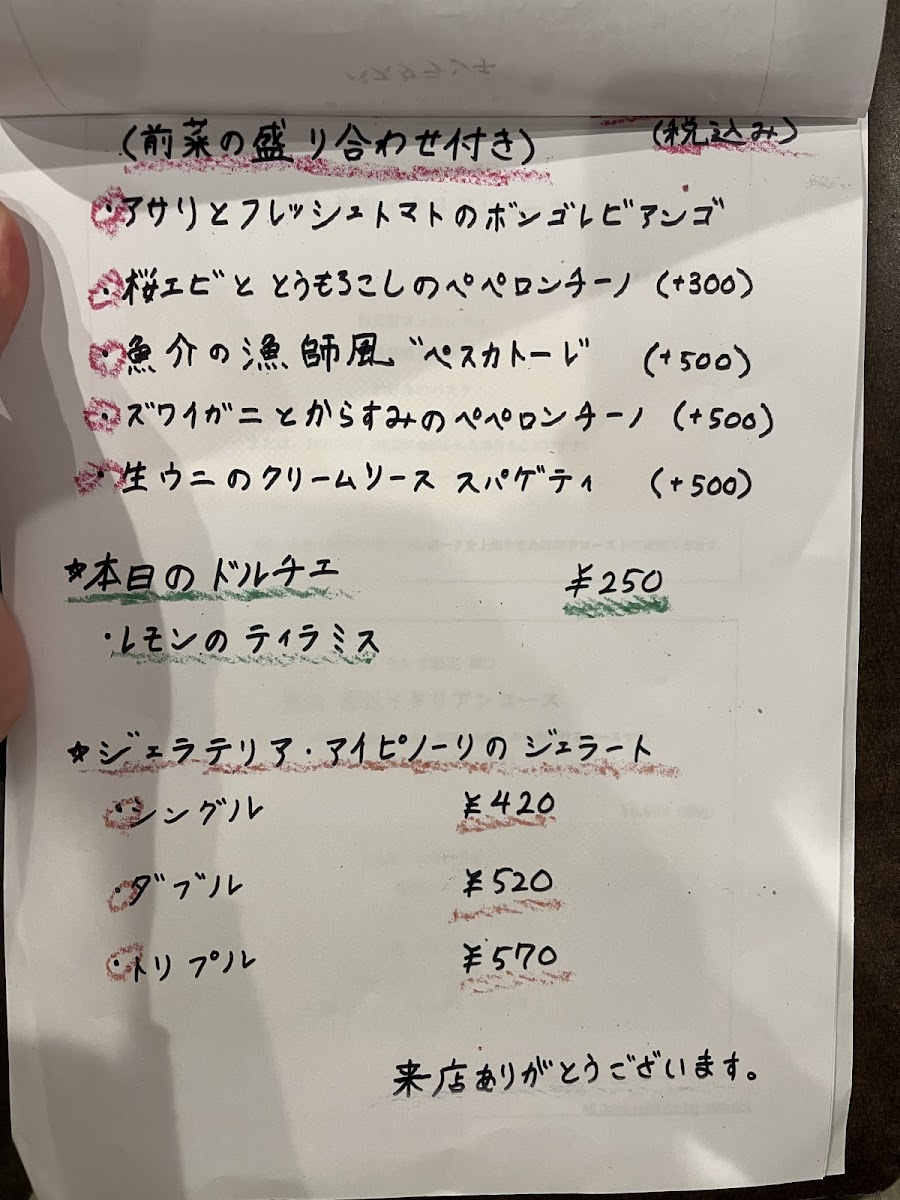 (前菜の盛り合わせ付き) (税込み)
・アサリとフレッシュトマトのボンゴレビアンゴ
・桜エビととうもろこしのペペロンチーノ (+300)
・魚介の漁師風゛ペスカトーレ゛ (+500)
・ズワイガニとからすみのペペロンチーノ (+500)
・生ウニのクリームソース スパゲティ (+500)
☆本日のドルチェ ¥250
・レモンのティラミス
☆ジェラテリア・アイピノーリのジェラート
・シングル ¥420
・ダブル ¥520
・トリプル ¥570
来店ありがとうございます。